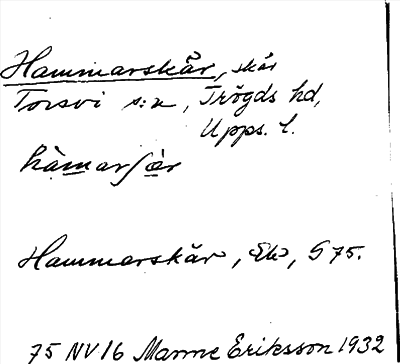 Hammarskär, skär
Torsvi s:n, Trögds hd,
Upps. l.
hàmarʃæ̀r
Hammarskär, Ek, S 75.
75 NV 16 Manne Eriksson 1932